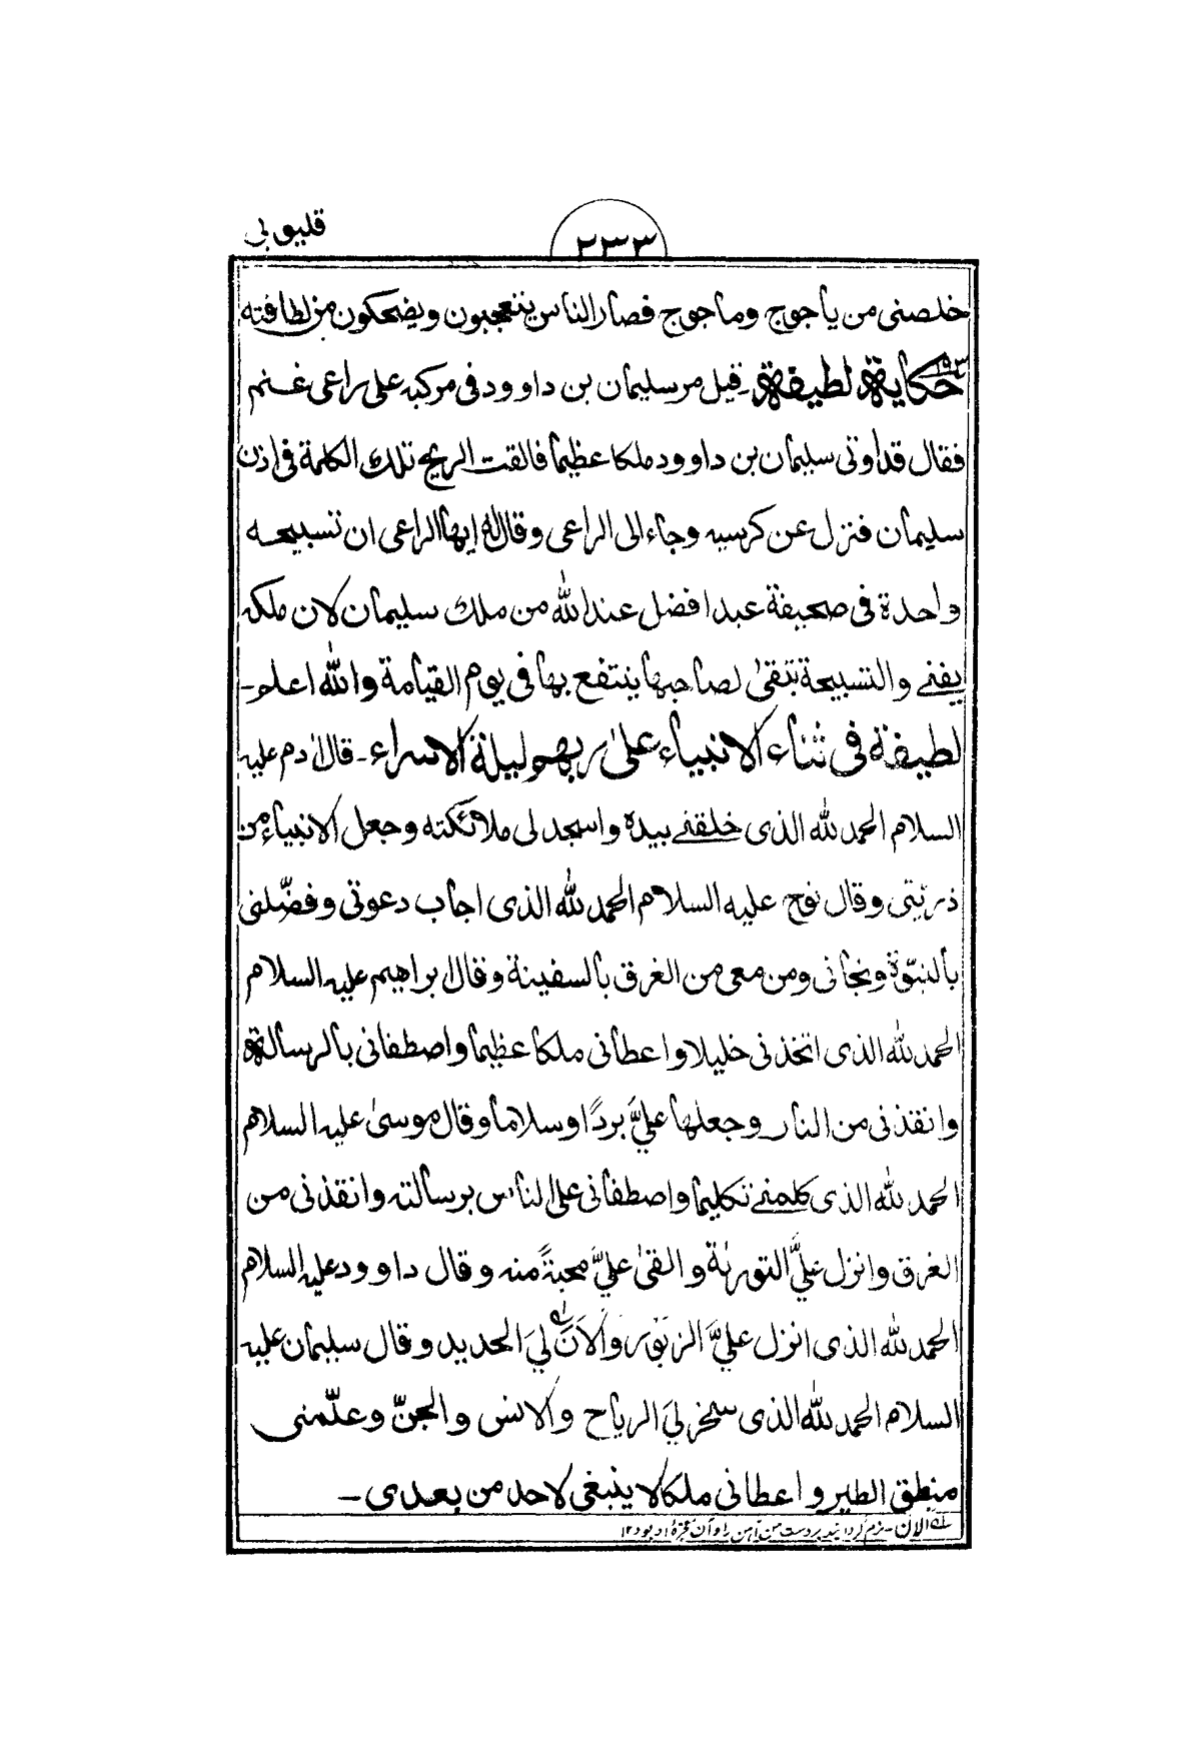 قليوبى
٢٣٣
خلصنى من ياجوج وماجوج فصار الناس يتعجبون ويضحكون من لطافته
حكاية لطيفة۔ قيل مر سليمان بن داوود فى مركبه على راعى غنم
فقال قد اوتى سليمان بن داوود ملكا عظيما فالقت الريح تلك الكلمة فى اذن
سليمان فنزل عن كرسيه وجاء الى الراعى وقال له ايها الراعى ان تسبيحه
واحدة فى صحيفة عبد افضل عند الله من ملك سليمان لان ملكه
يفنے والتسبيحة تبقىٰ لصاحبها ينتفع بها فى يوم القيامة والله اعلم۔
لطيفة فى ثناء الانبياء علىٰ ربهم ليلة الاسراء۔ قال اٰدم عليه
السلام الحمد لله الذى خلقنے بيده واسجد لى ملائكته وجعل الانبياء من
ذريتى وقال نوح عليه السلام الحمد لله الذى اجاب دعوتى وفضّلنى
بالنبوّة ونجانى ومن معى من الغرق بالسفينة وقال ابراهيم عليه السلام
الحمد لله الذى اتخذنى خليلا واعطانى ملكا عظيما واصطفانى بالرسالة
وانقذنى من النار وجعلها علىَّ بردًا وسلاما وقال موسىٰ عليه السلام
الحمد لله الذى كلمنے تكليما واصطفانى على الناس برسالته وانقذنى من
الغرق وانزل علىَّ التورىٰة والقىٰ علىَّ محبةً منه وقال داوود عليه السلام
الحمد لله الذى انزل علىَّ الزبور وَاَلاَنَ لىَ الحديد وقال سليمان عليه
السلام الحمد لله الذى سخر لىَ الرياح والانس والجنّ وعلّمنى
منطق الطير واعطانى ملكا لا ينبغى لاحد من بعدى۔
الان۔ نرم گردانيد بردست من آهن را و آن معجزهٔ او بود ١٢